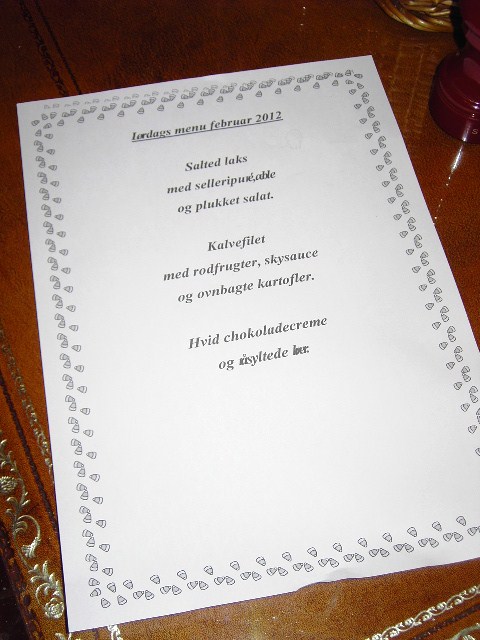 Lørdags menu februar 2012
Salted laks
med selleripuré, æble
og plukket salat.
Kalvefilet
med rodfrugter, skysauce
og ovnbagte kartofler.
Hvid chokoladecreme
og råsyltede bær.